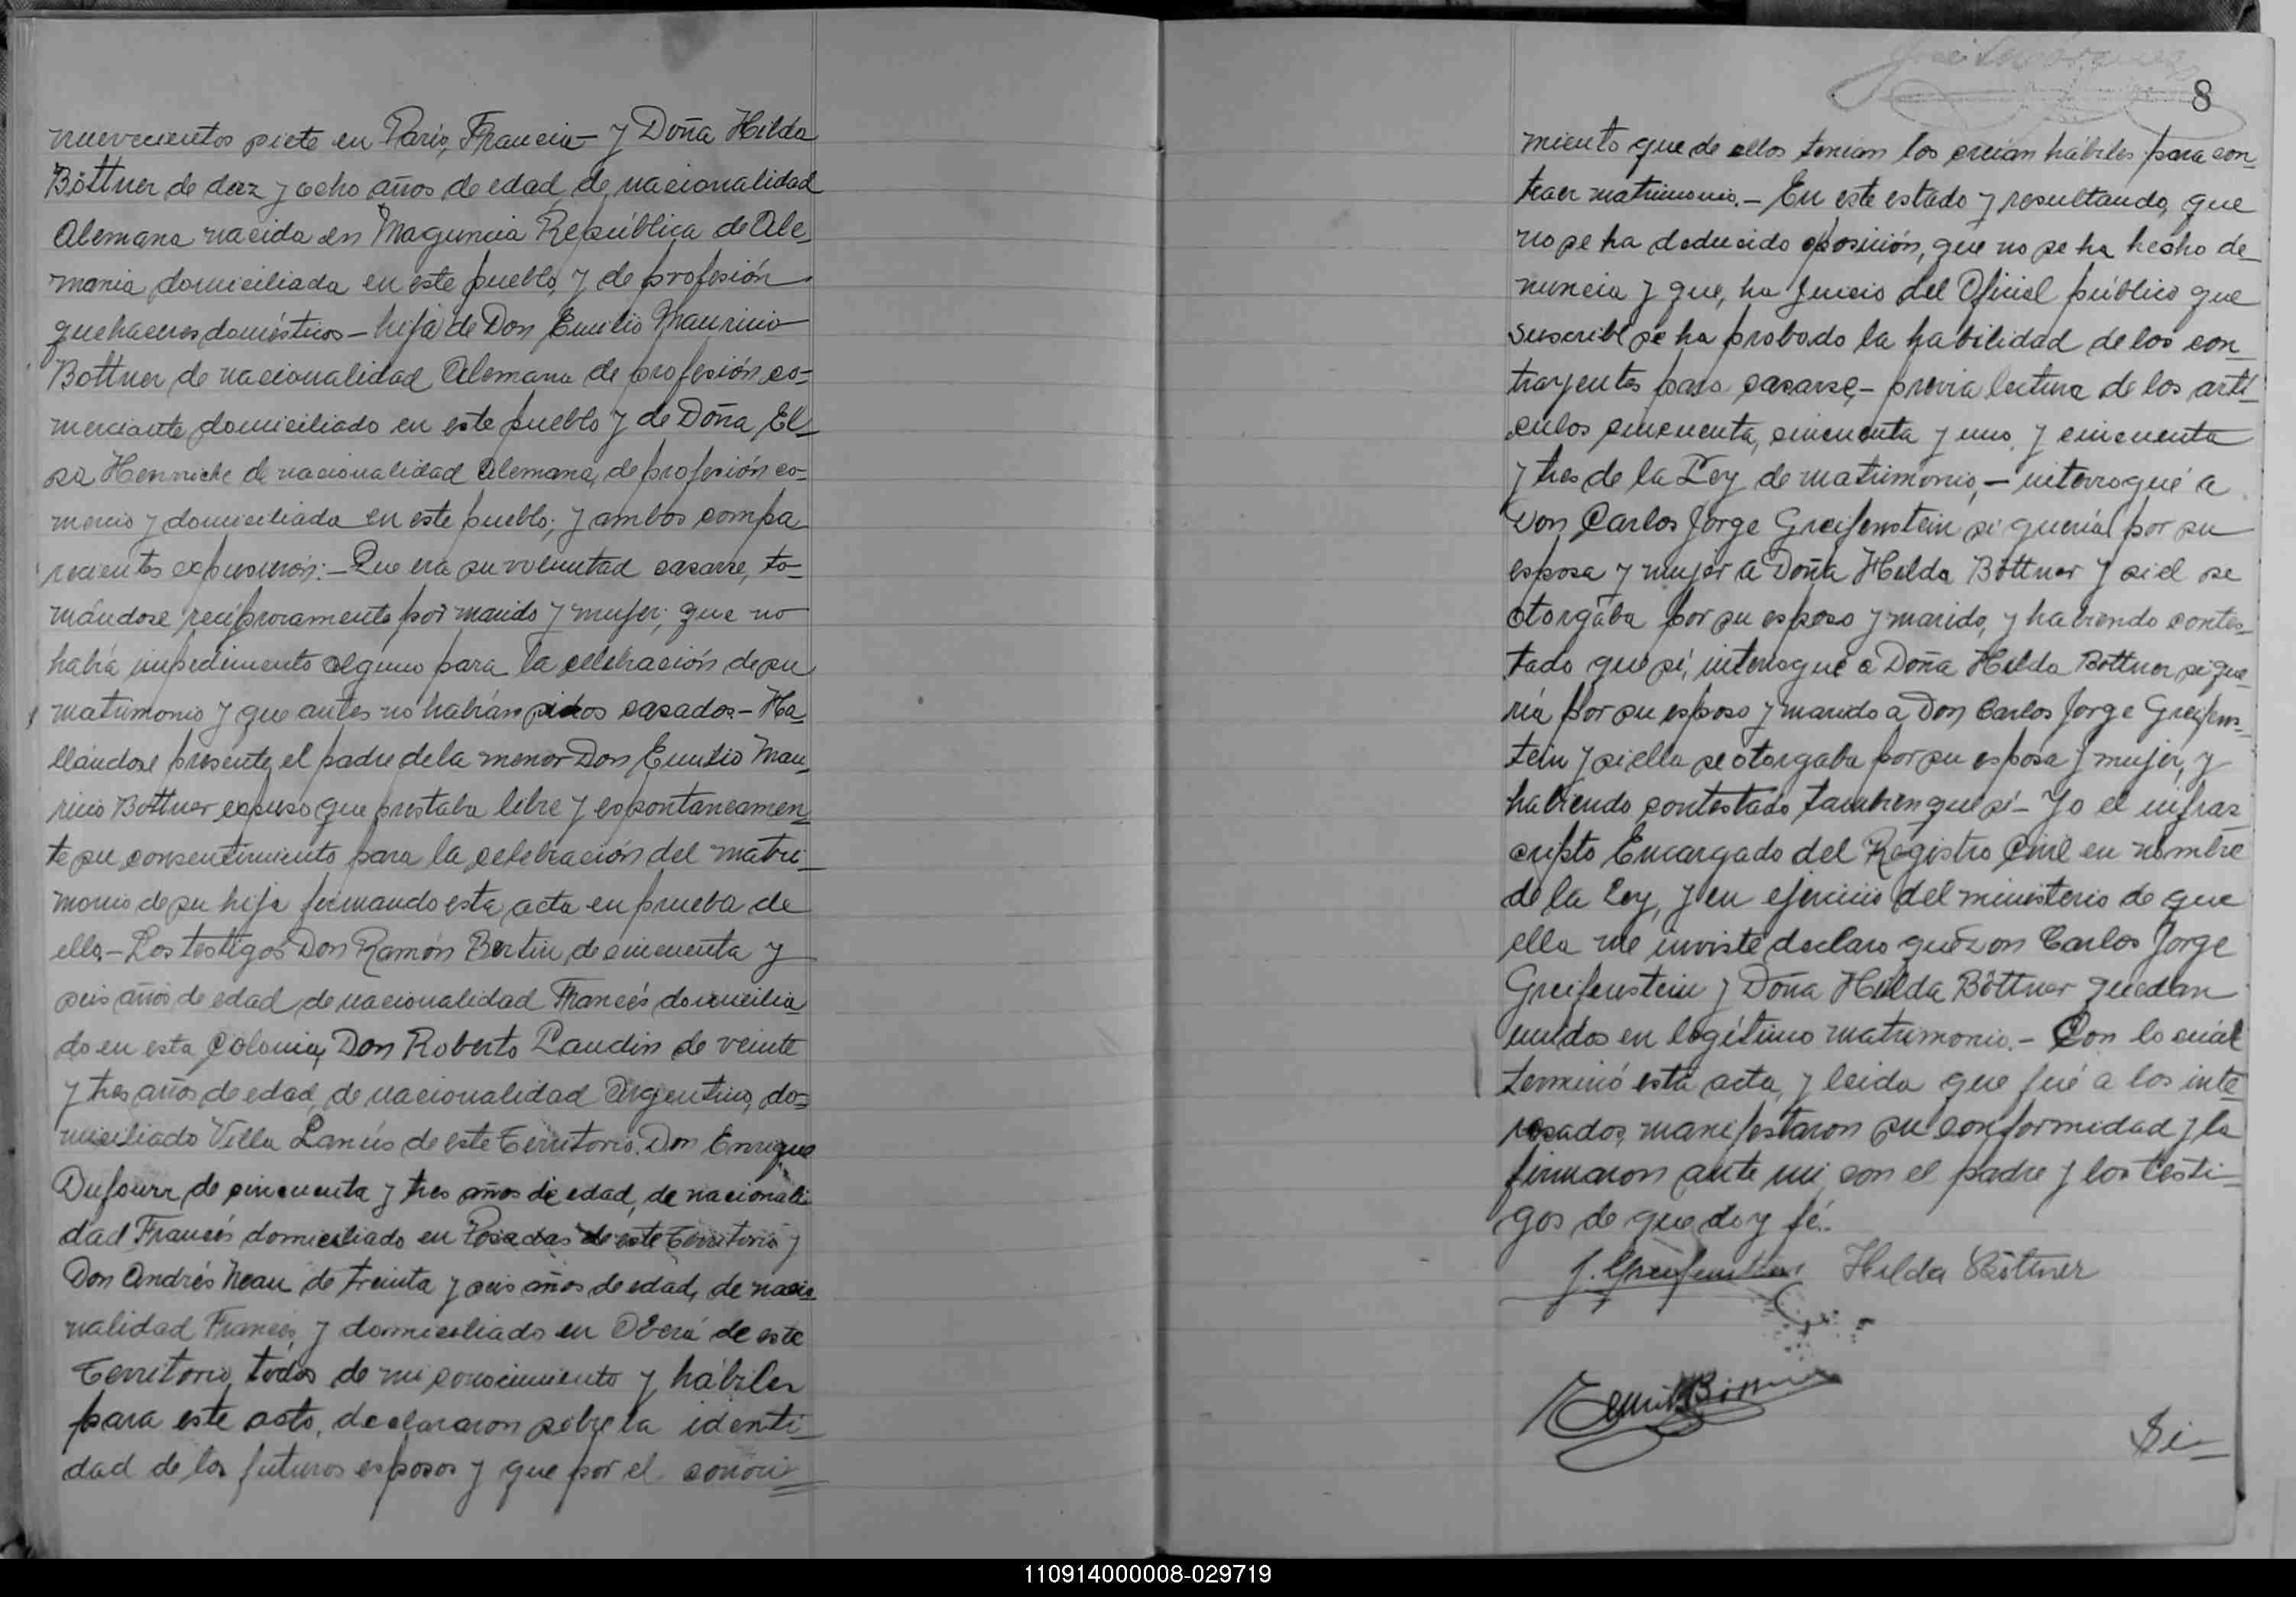 nuevecientos siete en Paris, Francia – y Doña Hilda
Böttner de diez y ocho años de edad, de nacionalidad
Alemana nacida en Maguncia República de Ale-
mania domiciliada en este pueblo, y de profesión
quehaceres domésticos – hija de Don Emilio Mauricio
Bottner de nacionalidad Alemana de profesión co-
merciante domiciliado en este pueblo y de Doña El-
sa Hennicke de nacionalidad Alemana, de profesión co-
mercio y domiciliada en este pueblo; y ambos compa
recientes expusieron: – Que era su voluntad casarse, to-
mándose recíprocamente por marido y mujer; que no
había impedimento alguno para la celebración de su
matrimonio y que antes no habían sidos casados – Ha-
llándose presente, el padre de la menor Don Emilio Mau-
ricio Bottner expuso que prestaba libre y espontaneamen-
te su consentimiento para la celebración del matri-
monio de su hija firmando esta acta en prueba de
ello. – Los testigos Don Ramón Bertin de cincuenta y
seis años de edad de nacionalidad Francés domicilia
do en esta Colonia, Don Roberto Landin de veinte
y tres años de edad, de nacionalidad Argentino, do-
miciliado Villa Lanús de este Territorio. Don Enrique
Dufourr de cincuenta y tres años de edad, de nacionali
dad Francés domiciliado en Posadas de este Territorio y
Don Andrés Neau de treinta y seis años de edad, de nacio
nalidad Francés, y domiciliado en Oberá de este
Territorio, todos de mi conocimiento y hábiles
para este acto, declararon sobre la identi-
dad de los futuros esposos y que por el conoci-
8
miento que de ellos tenian los creían hábiles para con-
traer matrimonio. – En este estado y resultando, que
no se ha deducido oposición, que no se ha hecho de-
nuncia y que, ha juicio del Oficial público que
suscribe se ha probado la habilidad de los con-
trayentes para casarse, – previa lectura de los artí-
culos cincuenta, cincuenta y uno, y cincuenta
y tres de la Ley de matrimonio, – interrogué a
Don Carlos Jorge Greifenstein si quería por su
esposa y mujer a Doña Hilda Bottner y si el se
otorgaba por su esposo y marido, y habiendo contes-
tado que si, interrogué a Doña Hilda Bottner si que-
ría por su esposo y marido a Don Carlos Jorge Greifens-
tein y si ella se otorgaba por su esposa y mujer, y
habiendo contestado tambien que si – Yo el infras
cripto Encargado del Registro Civil en nombre
de la Ley, y en ejercicio del ministerio de que
ella me inviste declaro que Don Carlos Jorge
Greifenstein y Doña Hilda Böttner quedan
unidos en legítimo matrimonio. – Con lo cuál
terminó esta acta, y leida que fué a los inte-
resados, manifestaron su conformidad y la
firmaron ante mi, con el padre y los testi-
gos de que doy fé.
J. Greifenstein Hilda Böttner
Si-
110914000008-029719